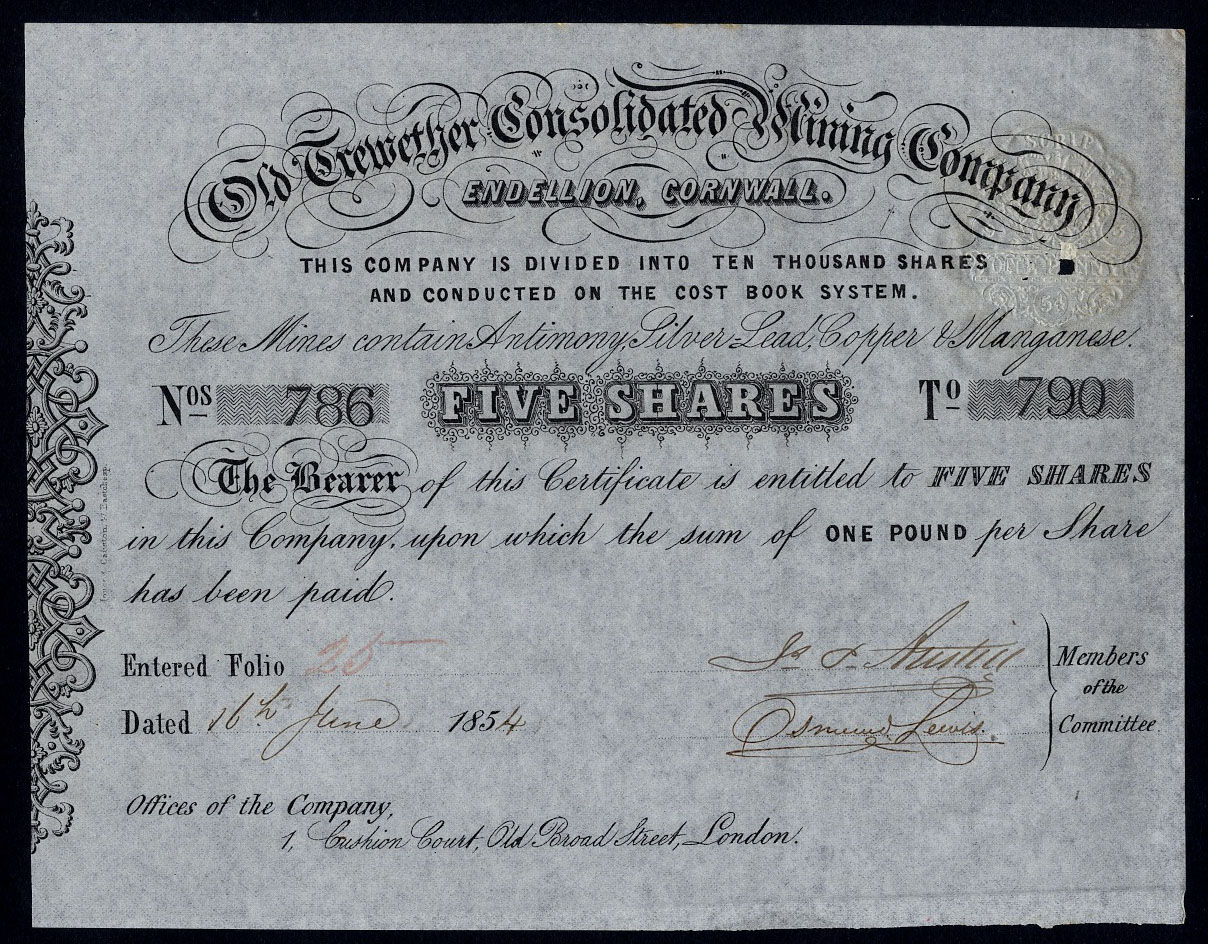 Old Trewether Consolidated Mining Company
ENDELLION, CORNWALL.
THIS COMPANY IS DIVIDED INTO TEN THOUSAND SHARES
AND CONDUCTED ON THE COST BOOK SYSTEM.
These Mines contain Antimony, Silver-Lead, Copper & Manganese.
Nos 786 FIVE SHARES To 790
The Bearer of this Certificate is entitled to FIVE SHARES
in this Company, upon which the sum of ONE POUND per Share
has been paid.
Entered Folio 25
Dated 16th June 1854
Osmund Lewis.
Members
of the
Committee
Offices of the Company,
1, Cushion Court, Old Broad Street, London.
SCRIP
ONE PENNY
54